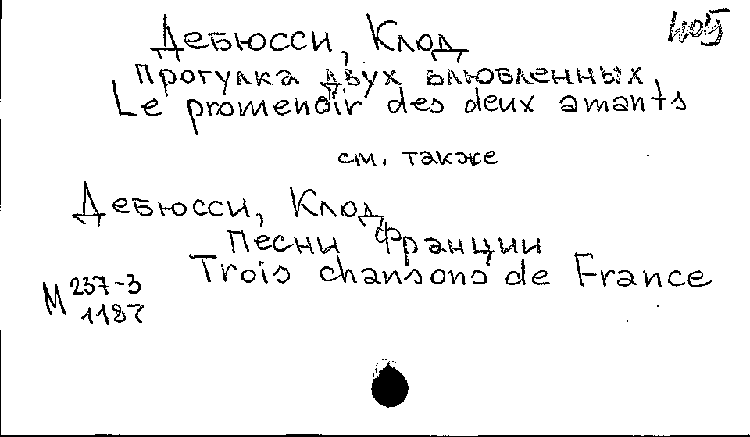 Дебюсси, Клод
Прогулка двух влюбленных,
Le promenoir des deux amants
см. также
Дебюсси, Клод
Песни Франции
Trois chansons de France
М 237-3
1187